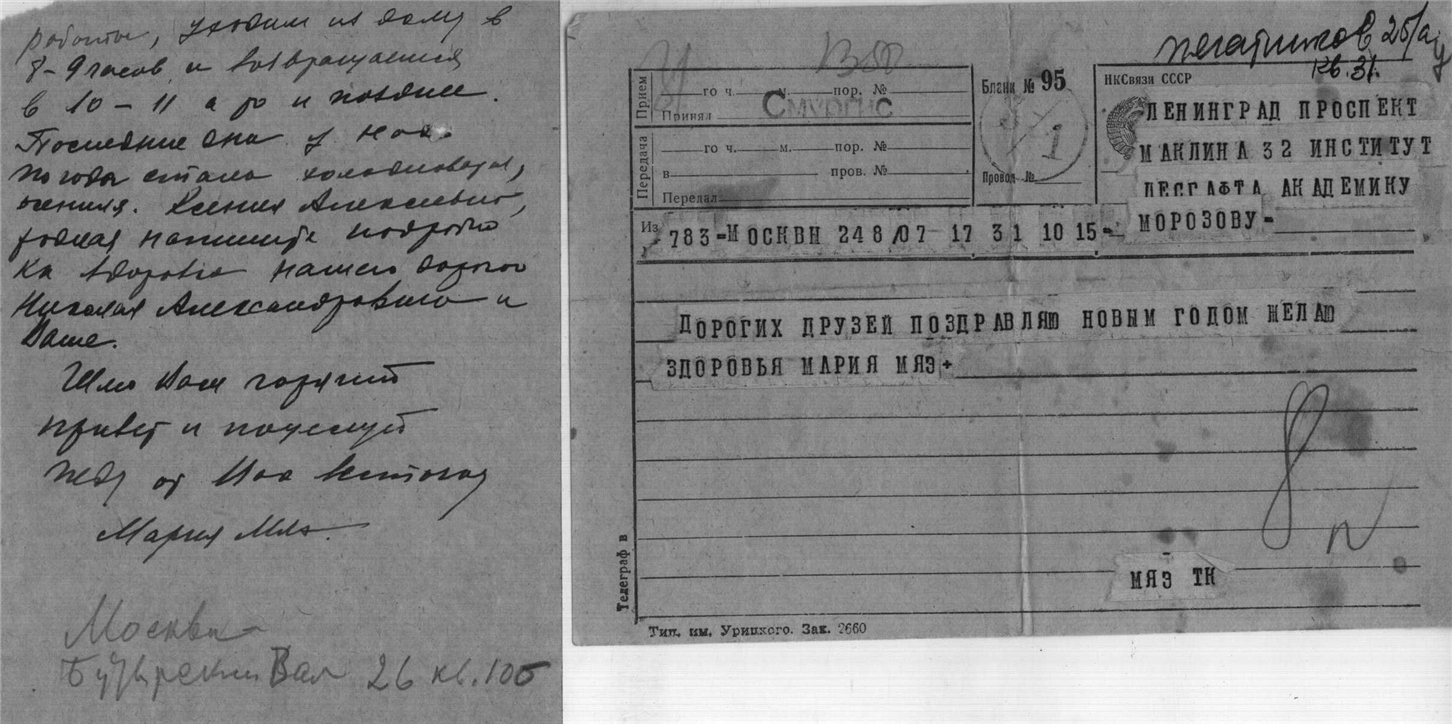 работы, уходим из дому в
8-9 часов и возвращаемся
в 10-11 а то и позднее.
Последние дни у нас
погода стала холодноватая,
осенняя. Ксения Алексеевна,
родная напишите подробно
о здоровье нашего дорогого
Николая Александровича и
Ваше.
Шлю Вам горячий
привет и поцелуй
от
Мария Мяэ.
Москва
Бутырский Вал 26 кв. 105
25/а
кв. 31.
Прием
го ч. м. пор. №
Принял
Передача
го ч. м. пор. №
в пров. №
Передал
Бланк № 95
1
Провод №
НКСвязи СССР
ЛЕНИНГРАД ПРОСПЕКТ
МАКЛИНА 32 ИНСТИТУТ
ЛЕСГАФТА АКАДЕМИКУ
МОРОЗОВУ-
Из 783-МОСКВН 248/07 17 31 10 15-
ДОРОГИХ ДРУЗЕЙ ПОЗДРАВЛЯЮ НОВЫМ ГОДОМ ЖЕЛАЮ
ЗДОРОВЬЯ МАРИЯ МЯЭ+
МЯЭ ТК
Телеграф в
Тип. им. Урицкого. Зак. 2660